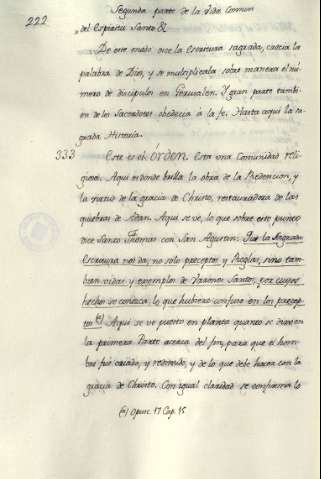 222
Segunda parte de la Vida Comun
„del Espiritu Santo &c
De este modo dice la Escritura sagrada, crecia la
palabra de Dios, y se multiplicaba sobre manera el nú-
mero de discipulos en Jerusalen. Y gran parte tambi-
en de los Sacerdotes obedecia a la fe. Hasta aqui la sa-
grada Historia.
333 Este es el órden. Esta una Comunidad reli-
giosa. Aqui es donde brilla la obra de la Redencion, y
la virtud de la gracia de Christo, restauradora de las
quiebras de Adan. Aqui se ve, lo que sobre este punto
dice Santo Thomas con San Agustin. Que la Sagrada
Escritura nos da, no solo preceptos y Reglas, sino tam-
bien vidas y exemplos de Varones Santos, por cuyos
hechos se conozca, lo que hubiere confuso en los precep-
tos (a) Aqui se ve puesto en planta quanto se dixo en
la primera Parte acerca del fin, para que el hom-
bre fue criado, y redimido, y de lo que debe hacer con la
gracia de Christo. Con igual claridad se confirma lo
(a) Opusc. 17 Cap. 15